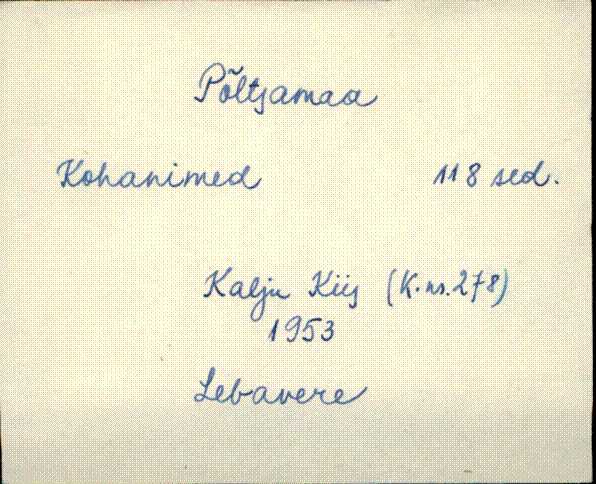 Põltsamaa
Kohanimed 118 sed.
Kalju Kiis (K.nr.278)
1953
Lebavere